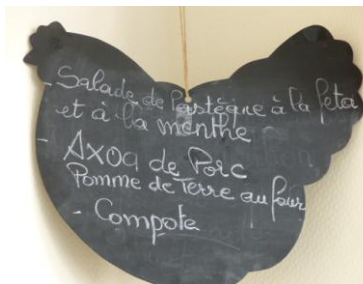 - Salade de Pastèque à la feta
et à la menthe
- Axoa de Porc
Pomme de Terre au four
- Compote